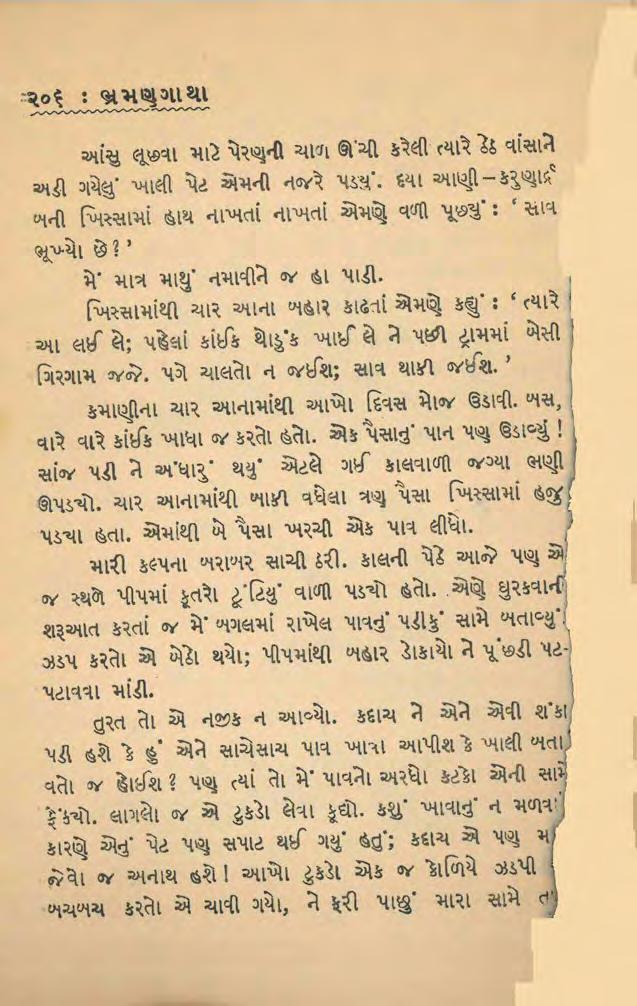 ૨૦૬ : ભ્રમણગાથા
આંસુ લૂછવા માટે પેરણની ચાળ ઊંચી કરેલી ત્યારે ઠેઠ વાંસાને
અડી ગયેલું ખાલી પેટ એમની નજરે પડ્યું. દયા આણી – કરુણાર્દ્ર
બની ખિસ્સામાં હાથ નાખતાં નાખતાં એમણે વળી પૂછ્યું : ‘ સાવ
ભૂખ્યો છે ? ’
મેં માત્ર માથું નમાવીને જ હા પાડી.
ખિસ્સામાંથી ચાર આના બહાર કાઢતાં એમણે કહ્યું : ‘ ત્યારે
આ લઈ લે; પહેલાં કાંઈક થોડુંક ખાઈ લે ને પછી ટ્રામમાં બેસી
ગિરગામ જજે. પગે ચાલતો ન જઈશ; સાવ થાકી જઈશ. ’
કમાણીના ચાર આનામાંથી આખો દિવસ મોજ ઉડાવી. બસ,
વારે વારે કાંઈક ખાધા જ કરતો હતો. એક પૈસાનું પાન પણ ઉડાવ્યું !
સાંજ પડી ને અંધારું થયું એટલે ગઈ કાલવાળી જગ્યા ભણી
ઊપડ્યો. ચાર આનામાંથી બાકી વધેલા ત્રણ પૈસા ખિસ્સામાં હજુ
પડ્યા હતા. એમાંથી બે પૈસા ખરચી એક પાવ લીધો.
મારી કલ્પના બરાબર સાચી ઠરી. કાલની પેઠે આજે પણ એ
જ સ્થળે પીપમાં કૂતરો ટૂંટિયું વાળી પડ્યો હતો. એણે ઘુરકવાની
શરૂઆત કરતાં જ મેં બગલમાં રાખેલ પાવનું પડીકું સામે બતાવ્યું.
ઝડપ કરતો એ બેઠો થયો; પીપમાંથી બહાર ડોકાયો ને પૂંછડી પટ-
પટાવવા માંડી.
તુરત તો એ નજીક ન આવ્યો. કદાચ ને એને એવી શંકા
પડી હશે કે હું એને સાચેસાચ પાવ ખાવા આપીશ કે ખાલી બતા
વતો જ હોઈશ ? પણ ત્યાં તો મેં પાવનો અરધો કટકો એની સામે
ફેંક્યો. લાગલો જ એ ટુકડો લેવા કૂદ્યો. કશું ખાવાનું ન મળવા
કારણે એનું પેટ પણ સપાટ થઈ ગયું હતું; કદાચ એ પણ
જેવો જ અનાથ હશે ! આખો ટુકડો એક જ કોળિયે ઝડપી
બચબચ કરતો એ ચાવી ગયો, ને ફરી પાછું મારા સામે